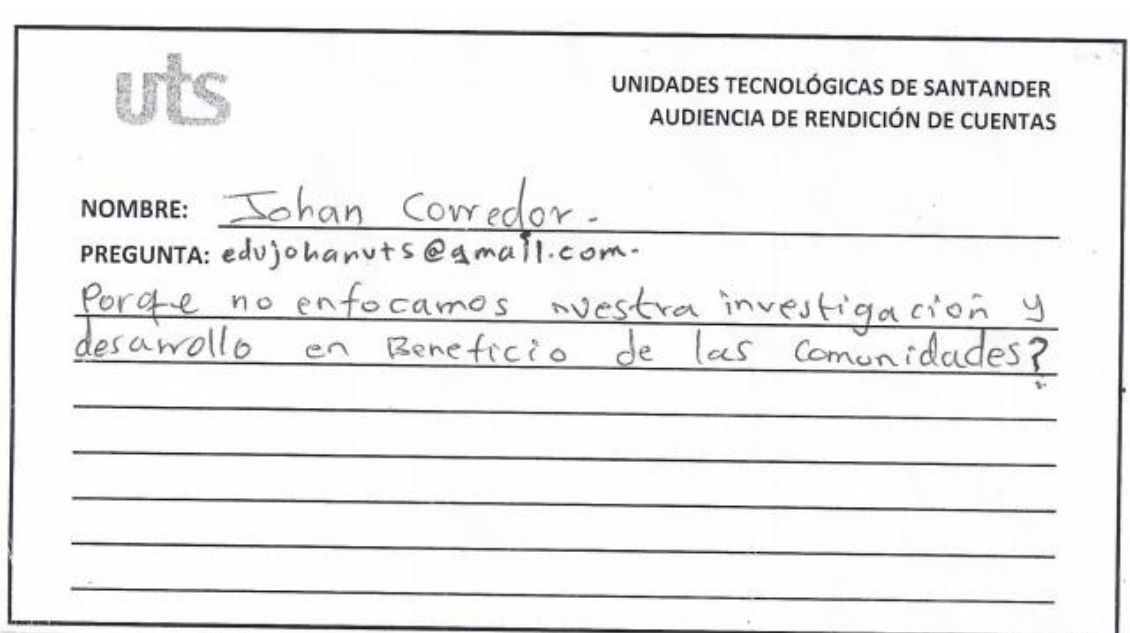 uts
UNIDADES TECNOLÓGICAS DE SANTANDER
AUDIENCIA DE RENDICIÓN DE CUENTAS
NOMBRE: Johan Corredor.
PREGUNTA: edujohanuts@gmail.com.
Porqe no enfocamos nuestra investigación y
desarrollo en Beneficio de las Comunidades?